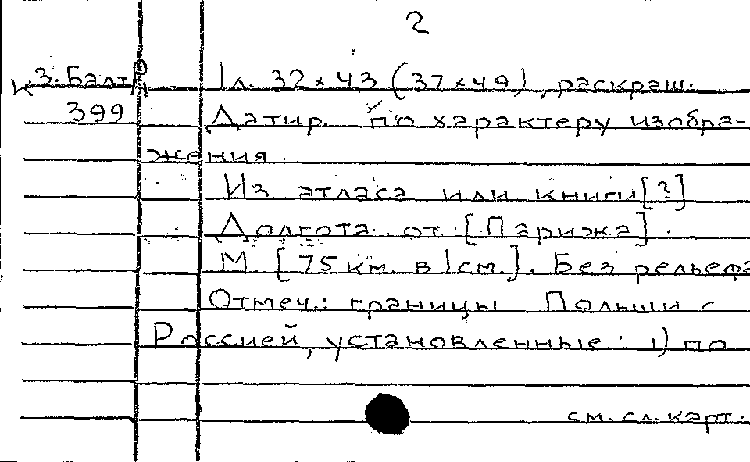 2
К 3. Балт 1 л. 32 × 43 (37 × 49), раскраш.
399 Датир. по характеру изобра-
жения
Из атласа или книги [?]
Долгота от [Парижа].
М. [75 км. в 1 см.]. Без рельефа
Отмеч.: границы Польши с
Россией, установленные: 1) по
см. сл. карт.